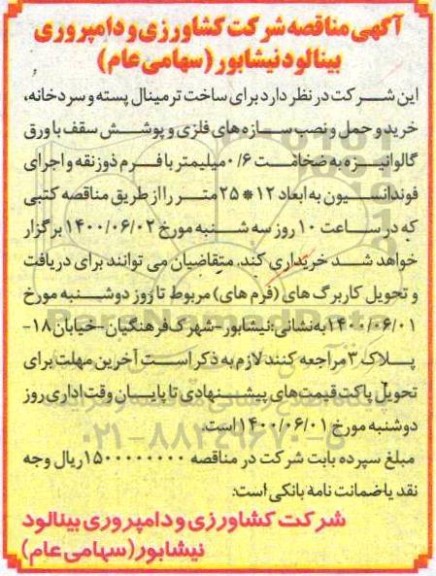 آگهی مناقصه شرکت کشاورزی و دامپروری
بینالود نیشابور (سهامی عام)
این شرکت در نظر دارد برای ساخت ترمینال پسته و سردخانه،
خرید و حمل و نصب سازه های فلزی و پوشش سقف با ورق
گالوانیزه به ضخامت ۰/۶ میلیمتر با فرم ذوزنقه و اجرای
فونداسیون به ابعاد ۱۲ * ۲۵ متر را از طریق مناقصه کتبی
که در ساعت ۱۰ روز سه شنبه مورخ ۱۴۰۰/۰۶/۰۲ برگزار
خواهد شد خریداری کند. متقاضیان می توانند برای دریافت
و تحویل کاربرگ های (فرم های) مربوط تا روز دوشنبه مورخ
۱۴۰۰/۰۶/۰۱ به نشانی: نیشابور- شهرک فرهنگیان- خیابان ۱۸-
پلاک ۳ مراجعه کنند. لازم به ذکر است آخرین مهلت برای
تحویل پاکت قیمت های پیشنهادی تا پایان وقت اداری روز
دوشنبه مورخ ۱۴۰۰/۰۶/۰۱ است.
مبلغ سپرده بابت شرکت در مناقصه ۱۵۰۰۰۰۰۰۰۰ ریال وجه
نقد یا ضمانت نامه بانکی است:
شرکت کشاورزی و دامپروری بینالود
نیشابور (سهامی عام)
ParsNamadData
۰۲۱-۸۸۳۴۹۶۷۰-۵